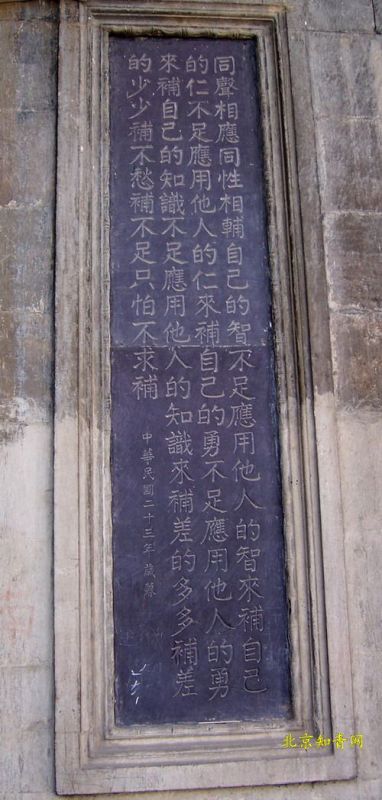 同聲相應同性相輔自己的智不足應用他人的智來補自己
的仁不足應用他人的仁來補自己的勇不足應用他人的勇
來補自己的知識不足應用他人的知識來補差的多多補差
的少少補不愁補不足只怕不求補
中華民國二十三年歲暮
北京知青网